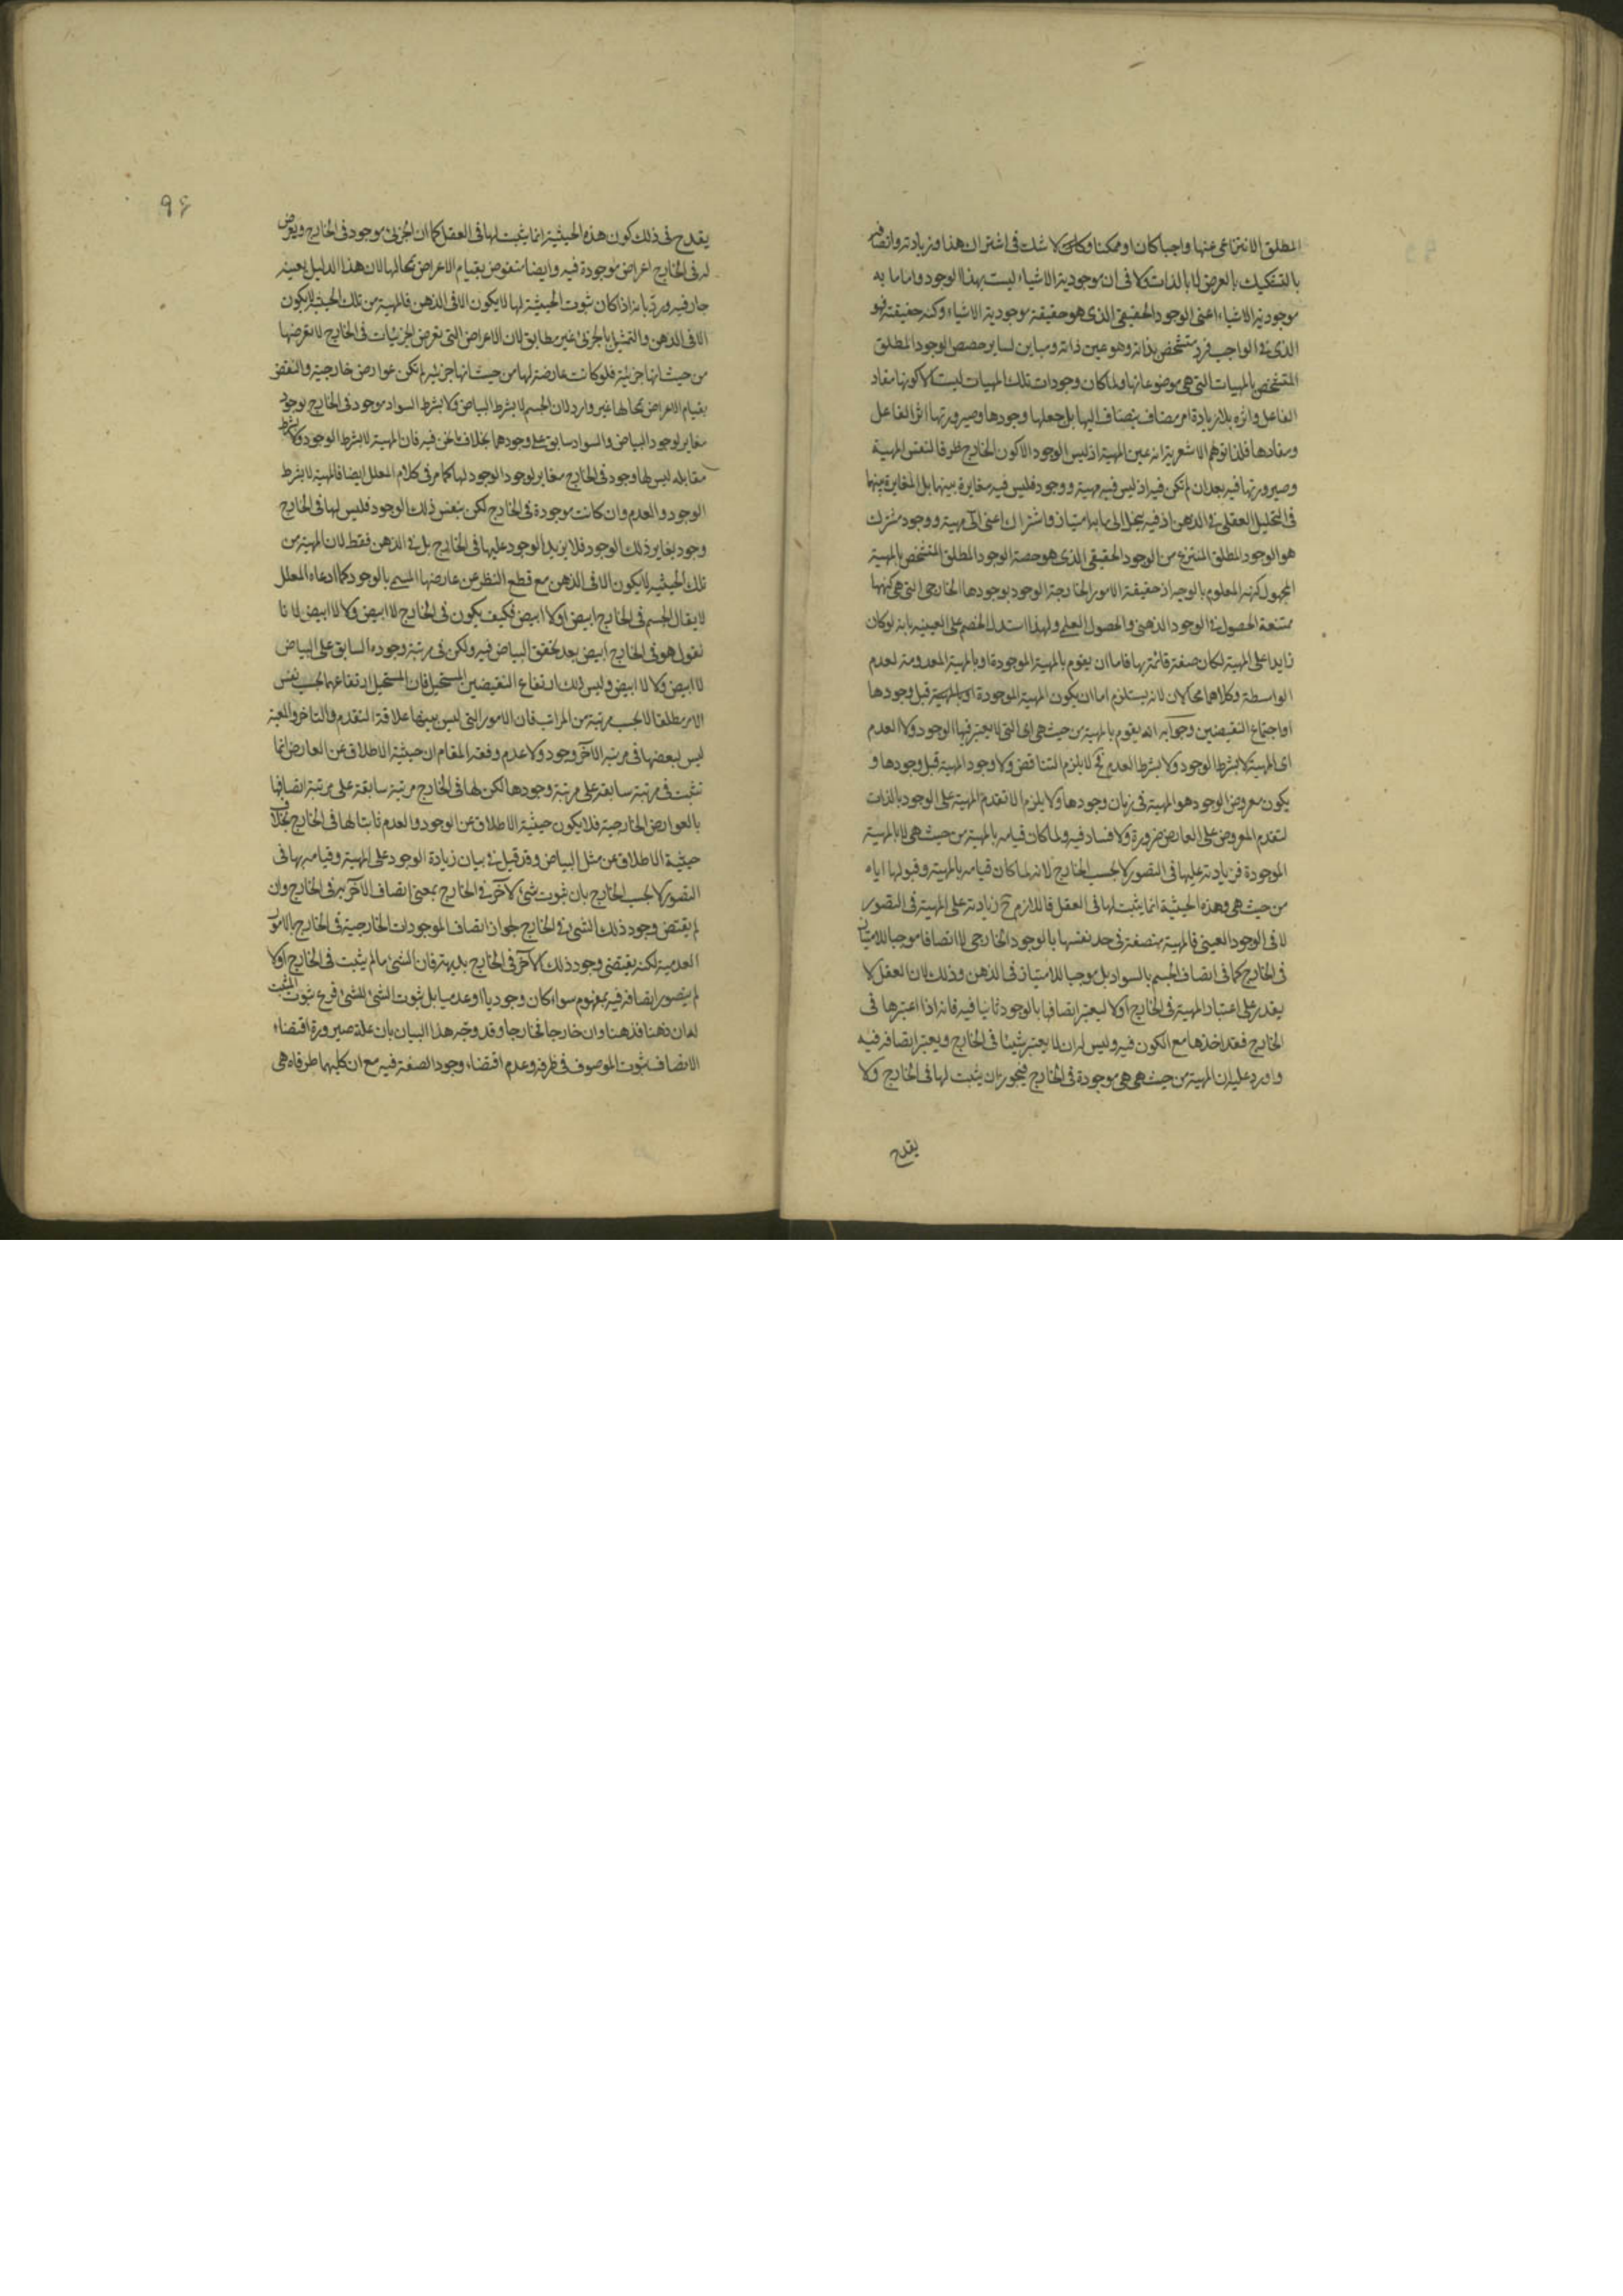 المطلق الانتزاعى عنها واجبا كان او ممكنا وكلا شك فى اشتراك هذا وزيادته واتصافه
بالتشكيك بالعرض لا بالذات ولا فى ان موجودية الاشياء ليست بهذا الوجود واما ما به
موجودية الاشياء اعنى الوجود الحقيقى الذى هو حقيقة موجودية الاشياء وكنه حقيقته فهو
الذى فى الواجب فرد متشخص بذاته وهو عين ذاته ومباين لساير حصص الوجود المطلق
المتشخص بالمهيات التى هى موضوعاتها ولما كان وجودات تلك المهيات ليست الا كونها مفاد
الفاعل واثره بلا زيادة امر مضاف ينضاف اليها بل جعلها وجودها وصيرورتها اثر الفاعل
ومفادها فلذا توهم الاشعرية انه عين المهية اذ ليس الوجود الا كون الخارج ظرفا لنفس المهية
وصيرورتها فيه بعد ان لم تكن فيه اذ ليس فيه مهية ووجود فليس فيه مغايرة بينها بل المغايرة بينهما
فى التحليل العقلى فى الذهن اذ فيه ينحل الى ما به امتياز واشتراك اعنى الى مهية ووجود مشترك
هو الوجود المطلق المنتزع من الوجود الحقيقى الذى هو حصة الوجود المطلق المتشخص بالمهية
المجهول كنهه المعلوم بالوجه اذ حقيقة الامور الخارجة الوجود بوجودها الخارجى التى هى كنهها
ممتنعة الحصول فى الوجود الذهنى والحصول العلمى ولهذا استدل الخصم على العينية بانه لو كان
زايدا على المهية لكان صفة قائمة بها فاما ان يقوم بالمهية الموجودة او بالمهية المعدومة لعدم
الواسطة وكلاهما محالان لانه يستلزم اما ان يكون المهية الموجودة قبل وجودها
او اجتماع النقيضين وجوابه انه يقوم بالمهية من حيث هى اى التى لا يعتبر فيها الوجود ولا العدم
اى المهية لا بشرط الوجود ولا بشرط العدم فح لا يلزم التناقض ولا وجود المهية قبل وجودها و
يكون معروض الوجود هو المهية فى زمان وجودها ولا يلزم الا تقدم المهية على الوجود بالذات
لتقدم المعروض على العارض ضرورة ولا فساد فيه ولما كان قيامه بالمهية من حيث هى لا بالمهية
الموجودة فزيادته عليها فى التصور لا بحسب الخارج لانه لما كان قيامه بالمهية وقبولها اياه
من حيث هى وهذه الحيثية انما يثبت لها فى العقل فاللازم ح زيادته على المهية فى التصور
لا فى الوجود العينى فالمهية متصفة فى حد نفسها بالوجود الخارجى لا اتصافا موجبا للامتياز
فى الخارج كما فى اتصاف الجسم بالسواد بل موجبا للامتياز فى الذهن وذلك لان العقل لا
يقدر على اعتبار المهية فى الخارج اولا ليعتبر اتصافها بالوجود ثانيا فيه فانه اذا اعتبرها فى
الخارج فقد اخذها مع الكون فيه وليس له ان لا يعتبر شيئا فى الخارج ويعتبر اتصافه فيه
واورد عليه ان المهية من حيث هى هى موجودة فى الخارج فيجوز ان يثبت لها فى الخارج ولا
يقدح
٩٦
يقدح فى ذلك كون هذه الحيثية انما يثبت لها فى العقل كما ان الجزئى موجود فى الخارج ويعرض
له فى الخارج اعراض موجودة فيه وايضا منقوض بقيام الاعراض بمحالها لان هذا الدليل بعينه
جار فيه ورد بانه اذا كان ثبوت الحيثية لها لا يكون الا فى الذهن فالمهية من تلك الحيثية لا يكون
الا فى الذهن والتمثيل بالجزئى غير مطابق لان الاعراض التى تعرض الجزئيات فى الخارج لا تعرضها
من حيث انها جزئية فلو كانت عارضة لها من حيث انها جزئية لم تكن عوارض خارجية والنقض
بقيام الاعراض بمحالها غير وارد لان الجسم لا بشرط البياض ولا بشرط السواد موجود فى الخارج بوجود
مغاير لوجود البياض والسواد سابق على وجودهما بخلاف ما نحن فيه فان المهية لا بشرط الوجود ولا بشرط
مقابله ليس لها وجود فى الخارج مغاير لوجود الوجود لها كما مر فى كلام المعلل ايضا فالمهية لا بشرط
الوجود والعدم وان كانت موجودة فى الخارج لكن بنفس ذلك الوجود فليس لها فى الخارج
وجود يغاير ذلك الوجود فلا يزيد الوجود عليها فى الخارج بل فى الذهن فقط لان المهية من
تلك الحيثية لا يكون الا فى الذهن مع قطع النظر عن عارضها المسمى بالوجود كما ادعاه المعلل
لا يقال الجسم فى الخارج ابيض او لا ابيض فكيف يكون فى الخارج لا ابيض ولا لا ابيض لانا
نقول هو فى الخارج ابيض بعد تحقق البياض فيه ولكن فى مرتبة وجوده السابق على البياض
لا ابيض ولا لا ابيض وليس ذلك ارتفاع النقيضين المستحيل فان المستحيل ارتفاعهما بحسب نفس
الامر مطلقا لا بحسب مرتبة من المراتب فان الامور التى ليس بينها علاقة التقدم والتاخر والمعية
ليس لبعضها فى مرتبة الآخر وجود ولا عدم وفقه المقام ان حيثية الاطلاق عن العارض انما
تثبت فى مرتبة سابقة على مرتبة وجودها لكن لها فى الخارج مرتبة سابقة على مرتبة اتصافها
بالعوارض الخارجية فلا يكون حيثية الاطلاق عن الوجود والعدم ثابتا لها فى الخارج بخلاف
حيثية الاطلاق عن مثل البياض وقد قيل فى بيان زيادة الوجود على المهية وقيامه بها فى
التصور لا بحسب الخارج بان ثبوت شئ لآخر فى الخارج بمعنى اتصاف الآخر به فى الخارج وان
لم يقتض وجود ذلك الشئ فى الخارج لجواز اتصاف الموجودات الخارجية فى الخارج بالامور
العدمية لكنه يقتضى وجود ذلك الآخر فى الخارج بديهة فان الشئ ما لم يثبت فى الخارج اولا
لم يتصور اتصافه فيه بمفهوم سواء كان وجوديا او عدميا بل ثبوت الشئ للشئ فرع ثبوت المثبت
له ان ذهنا فذهنا وان خارجا فخارجا وقد وجه هذا البيان بان علة صيرورة اقتضاء
الاتصاف ثبوت الموصوف فى ظرفه وعدم اقتضاء وجود الصفة فيه مع ان كليهما طرفاه هى